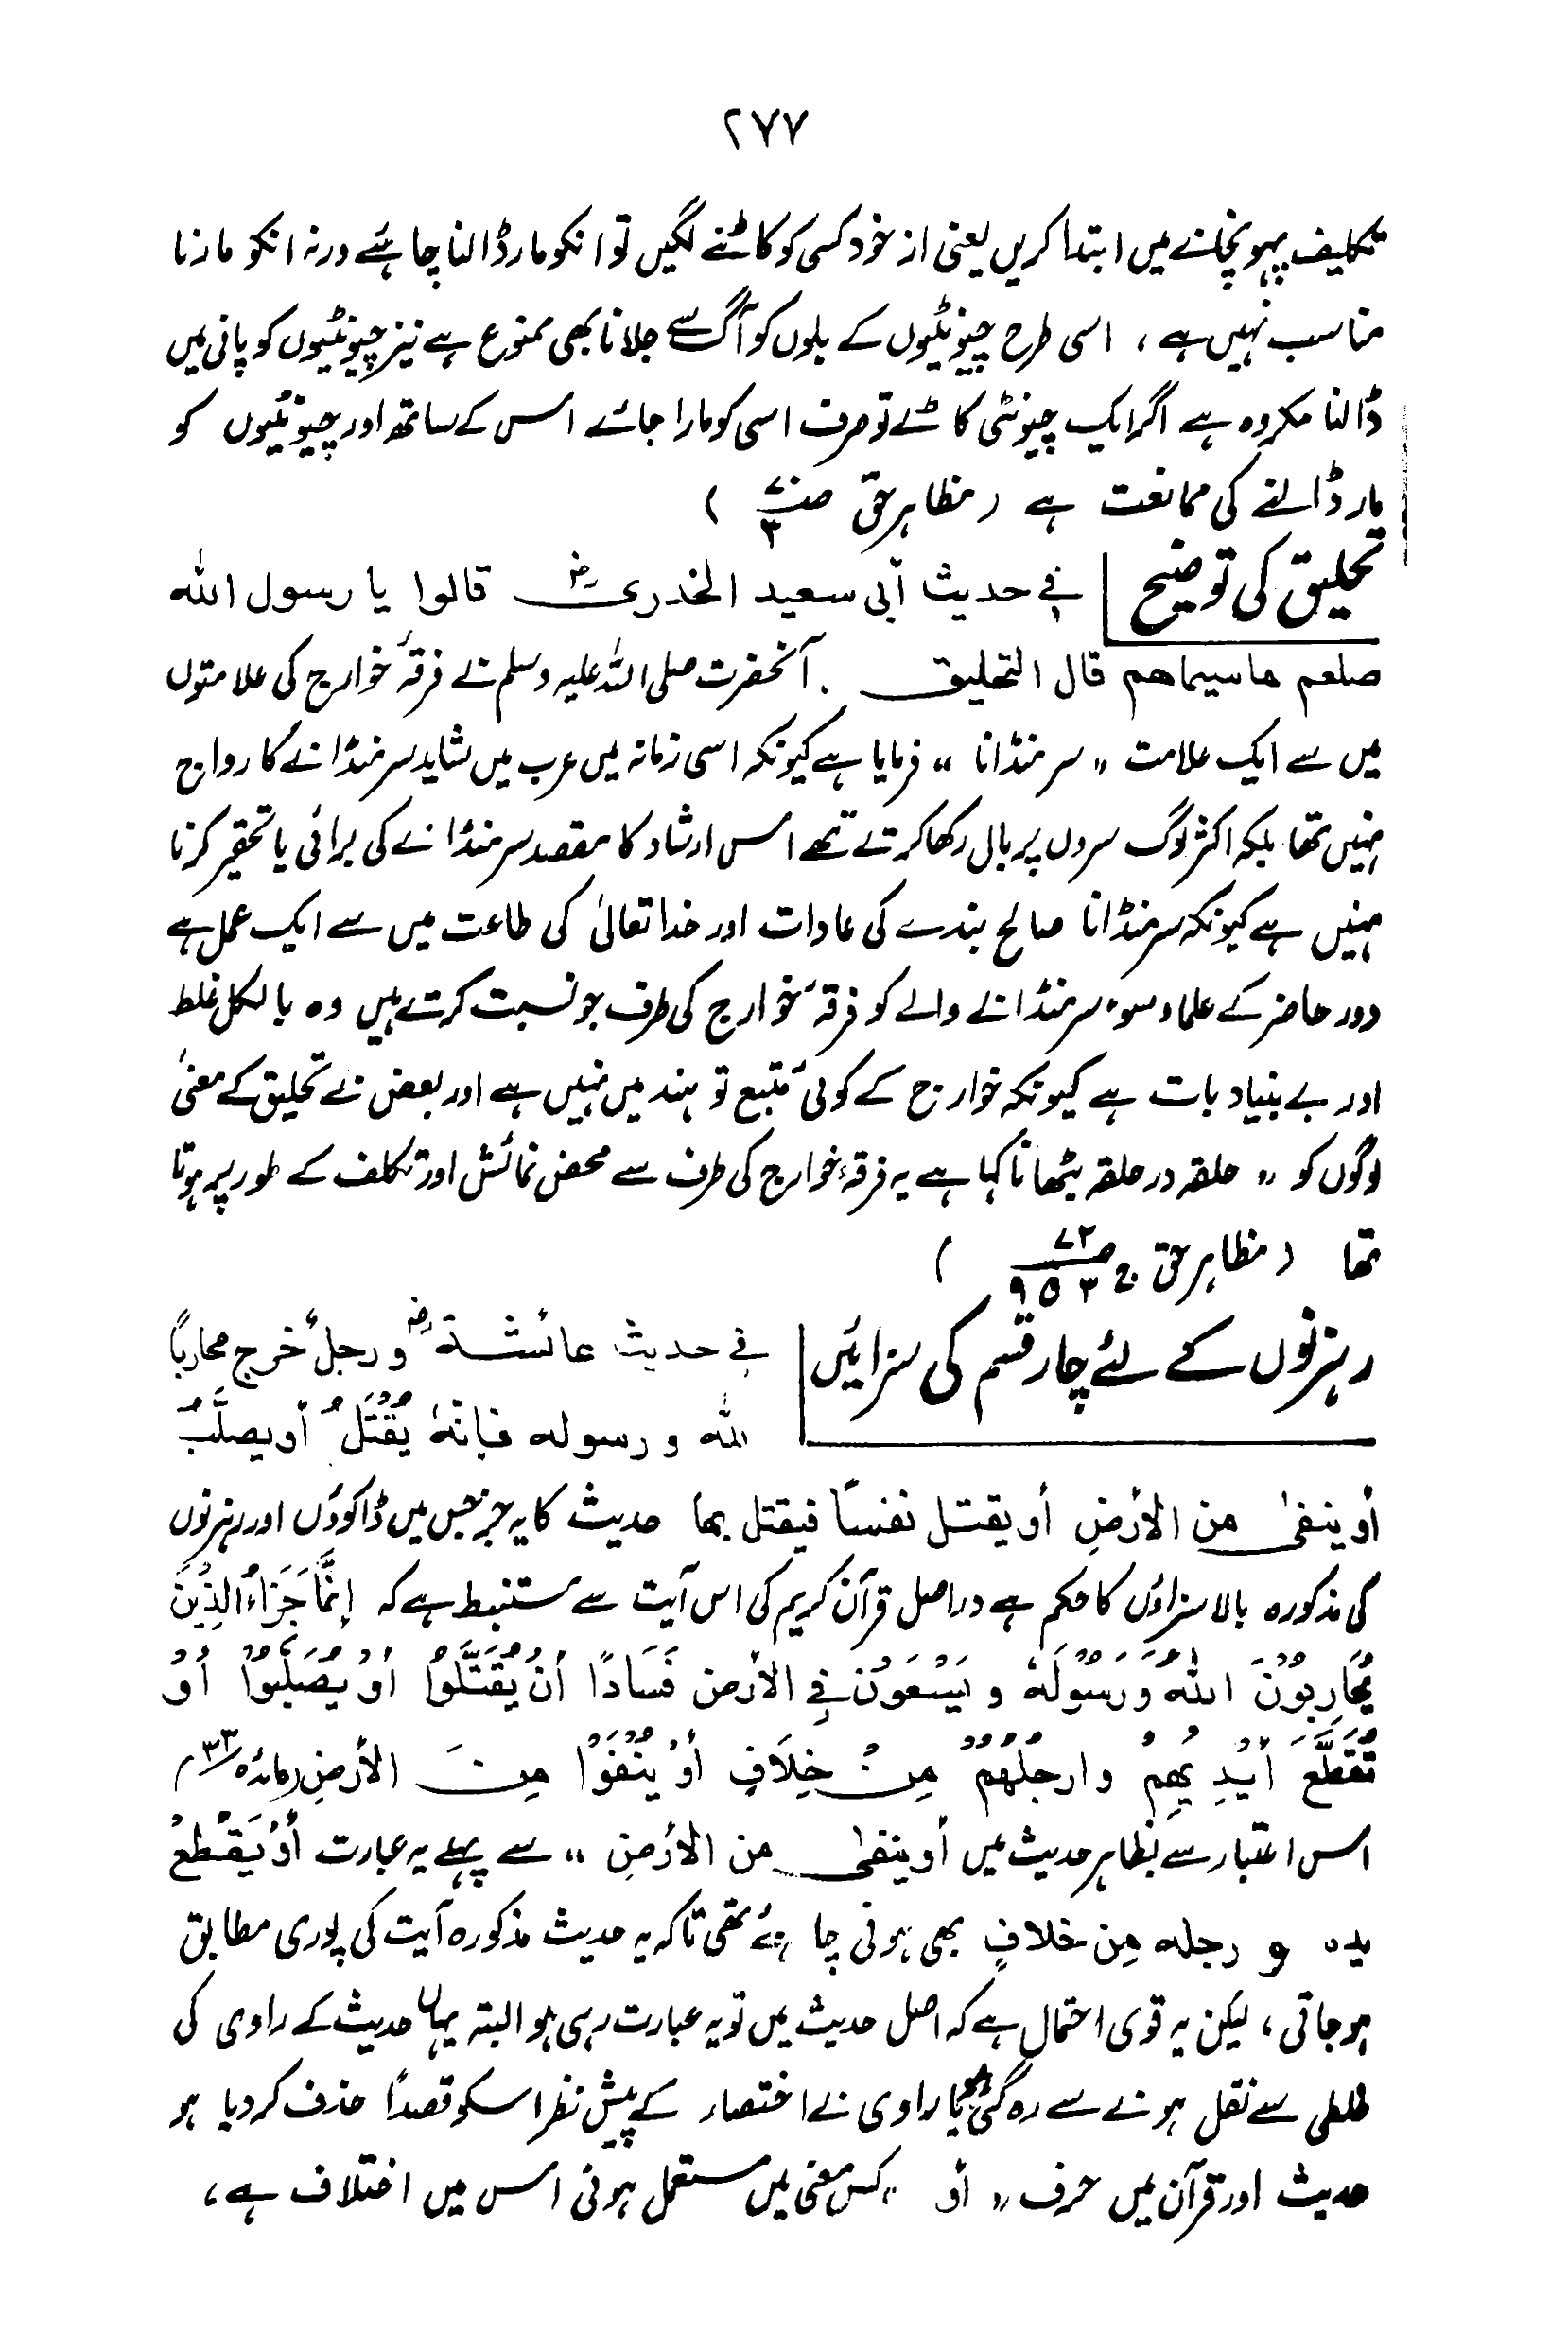 ۲۷۷
تکلیف پہونچانے میں ابتدا کریں یعنی از خود کسی کو کاٹنے لگیں تو انکو مار ڈالنا چاہئے ورنہ انکو مارنا
مناسب نہیں ہے ، اسی طرح چیونٹیوں کے بلوں کو آگ سے جلانا بھی ممنوع ہے نیز چیونٹیوں کو پانی میں
ڈالنا مکروہ ہے اگر ایک چیونٹی کاٹے تو صرف اسی کو مارا جائے اس کے ساتھ اور چیونٹیوں کو
مار ڈالنے کی ممانعت ہے ( مظاہر حق )
تحلیق کی توضیح | في حديث أبى سعيد الخدرىؓ قالوا يا رسول الله
صلعم ما سيماهم قال التحليق . آنحضرت صلی اللہ علیہ وسلم نے فرقۂ خوارج کی علامتوں
میں سے ایک علامت " سر منڈانا " فرمایا ہے کیونکہ اسی زمانہ میں عرب میں شاید سر منڈانے کا رواج
نہیں تھا بلکہ اکثر لوگ سروں پر بال رکھا کرتے تھے اس ارشاد کا مقصد سر منڈانے کی برائی یا تحقیر کرنا
نہیں ہے کیونکہ سر منڈانا صالح بندے کی عادات اور خدا تعالیٰ کی طاعت میں سے ایک عمل ہے
دور حاضر کے علماء سوء سر منڈانے والے کو فرقۂ خوارج کی طرف جو نسبت کرتے ہیں وہ بالکل غلط
اور بے بنیاد بات ہے کیونکہ خوارج کے کوئی متبع تو ہند میں نہیں ہے اور بعض نے تحلیق کے معنیٰ
لوگوں کو " حلقہ در حلقہ بٹھانا کہا ہے یہ فرقۂ خوارج کی طرف سے محض نمائش اور تکلف کے طور پر ہوتا
تھا ( مظاہر حق )
رہزنوں کے لئے چار قسم کی سزائیں | في حديث عائشةؓ و رجلٌ خرج محاربًا
لله و رسوله فإنهٗ يُقْتَلُ أو يصلَّبُ
أو ينفىٰ من الأرضِ أو يقتل نفسًا فيقتل بها حدیث کا یہ جز جس میں ڈاکوؤں اور رہزنوں
کی مذکورہ بالا سزاؤں کا حکم ہے دراصل قرآن کریم کی اس آیت سے مستنبط ہے کہ إِنَّمَا جَزَاءُ الَّذِيْنَ
يُحَارِبُوْنَ اللهَ وَ رَسُوْلَهٗ و يَسْعَوْنَ فِي الأرضِ فَسَادًا أنْ يُقَتَّلُوْا أوْ يُصَلَّبُوْا أوْ
تُقَطَّعَ أيْدِيْهِمْ وارجُلُهُمْ مِنْ خِلَافٍ أوْ يُنْفَوْا مِنَ الأرضِ (مائدہ ۳۳)
اس اعتبار سے بظاہر حدیث میں أو ينفىٰ من الأرضِ " سے پہلے یہ عبارت أوْ يَقْطَعُ
يده و رجله مِن خلافٍ بھی ہونی چاہئے تھی تاکہ یہ حدیث مذکورہ آیت کی پوری مطابق
ہو جاتی ، لیکن یہ قوی احتمال ہے کہ اصل حدیث میں تو یہ عبارت رہی ہو البتہ یہاں حدیث کے راوی کی
غلطی سے نقل ہونے سے رہ گئی یا راوی نے اختصار کے پیش نظر اسکو قصدًا حذف کر دیا ہو
حدیث اور قرآن میں حرف " أو " کس معنی میں مستعمل ہوئی اس میں اختلاف ہے ،